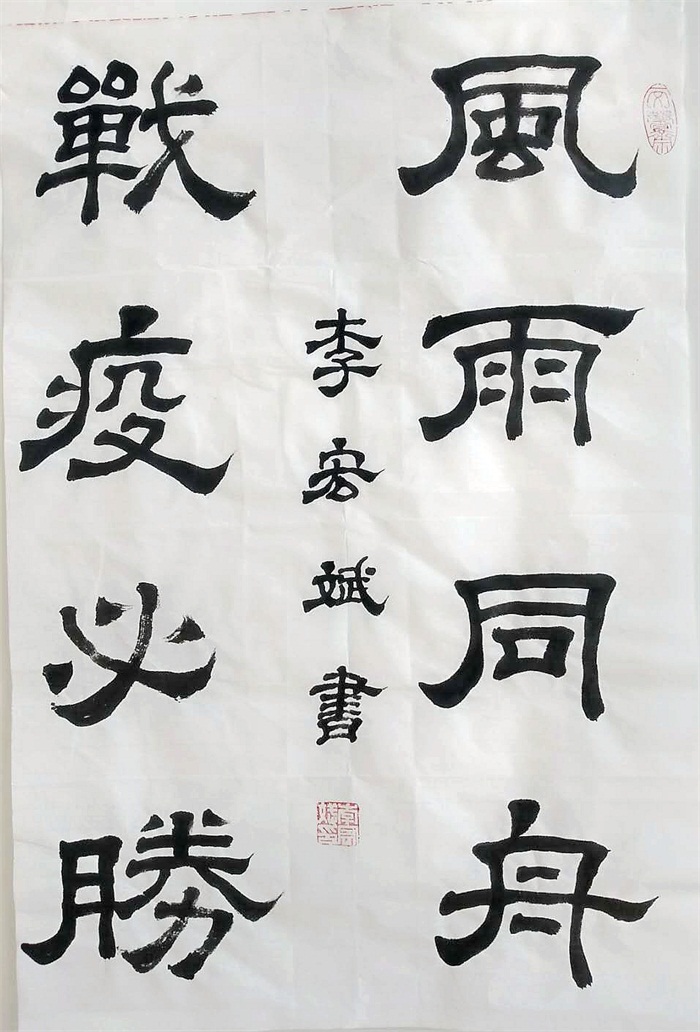 風雨同舟
戰疫必勝
李宏斌書